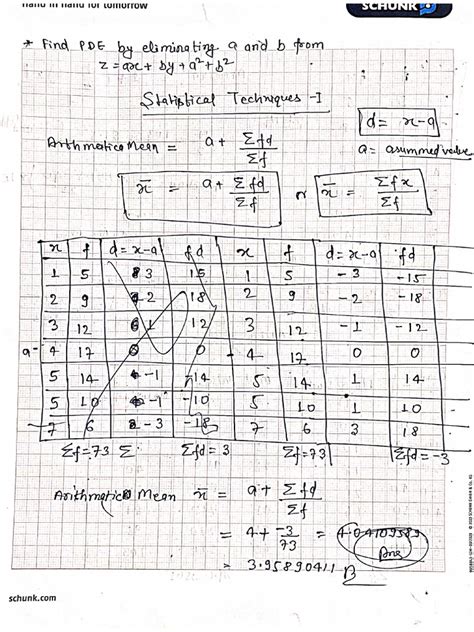 Hand in hand for tomorrow
SCHUNK
* Find PDE by eliminating a and b from
z = ax + by + a² + b²
Statistical Techniques - I
d = x-a
Arithmatic Mean = a + Σfd / Σf
a = asummed value
x̄ = a + Σfd / Σf or x̄ = Σfx / Σf
x f d = x-a fd x f d = x-a fd
1 5 3 15 1 5 -3 -15
2 9 2 18 2 9 -2 -18
3 12 1 12 3 12 -1 -12
a- 4 17 0 0 4 17 0 0
5 14 -1 -14 5 14 1 14
5 10 -1 -10 5 10 1 10
7 6 -3 -18 7 6 3 18
Σf = 73 Σ Σfd = 3 Σf = 73 Σfd = -3
Arithmatic Mean x̄ = a + Σfd / Σf
= 4 + -3/73 = 4.04109589
Ans
= 3.95890411
schunk.com